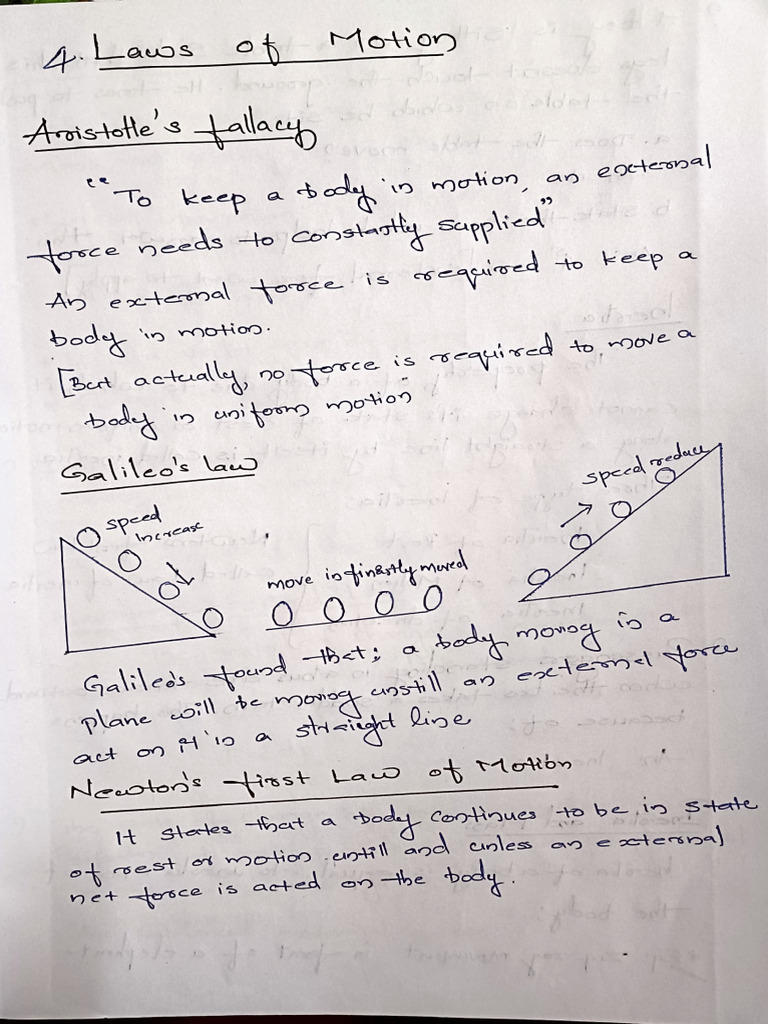 4. Laws of Motion
Aristotle's fallacy
"To keep a body in motion, an external
force needs to constantly supplied"
An external force is required to keep a
body in motion.
[But actually, no force is required to move a
body in uniform motion
Galileo's law
speed
increase
move infinitly moved
speed reduce
Galileo's found that; a body moving in a
plane will be moving unstill an external force
act on it in a straight line
Newton's first Law of Motion
It states that a body continues to be in state
of rest or motion untill and unless an external
net force is acted on the body.